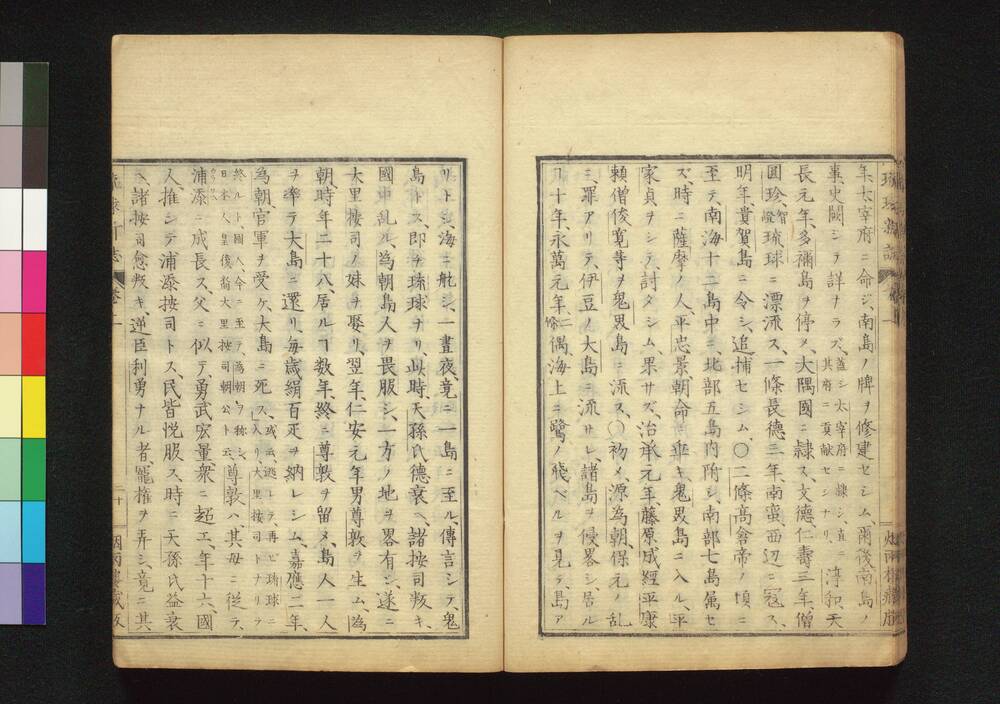 年太宰府ニ命シ、南島ノ牌ヲ修建セシム、爾後、南島ノ
事、史闕シテ詳ナラズ、蓋シ太宰府ニ隷シ、直ニ其府ニ貢献セシナリ、淳和、天
長元年、多禰島ヲ停メ、大隅國ニ隷ス、文德、仁壽三年、僧
圓珍、智證琉球ニ漂流ス、一條長德三年、南蛮西辺ニ寇ス、
明年、貴賀島ニ令シ、追捕セシム、〇二條高倉帝ノ頃ニ
至テ、南海十二島中ニ、北部五島内附シ、南部七島属セ
ズ、時ニ薩摩ノ人、平忠景朝命ニ乖キ、鬼界島ニ入ル、平
家貞ヲシテ、討タシム、果サズ、治承元年、藤原成經、平康
頼、僧俊寛等ヲ鬼界島ニ流ス、〇初メ、源為朝、保元ノ乱
ニ罪アリテ、伊豆ノ大島ニ流サレ、諸島ヲ侵畧シ、居ル
コ十年、永萬元年、二條、偶海上ニ鷺ノ飛ベルヲ見テ、島ア
リトシ、海ニ航シ、一晝夜、竟ニ一島ニ至ル、傳言シテ、鬼
島トス、即チ琉球ナリ、此時、天孫氏德衰ヘ、諸按司叛キ、
國中乱ル、為朝島人ヲ畏服シ、一方ノ地ヲ畧有シ、遂ニ
大里按司ノ妹ヲ娶リ、翌年、仁安元年男尊敦ヲ生ム、為
朝、時年二十八、居ルコ数年、終ニ尊敦ヲ留メ、島人一人
ヲ率テ大島ニ還リ、毎歳絹百疋ヲ納レシム、嘉應二年、
為朝、官軍ヲ受ケ、大島ニ死ス、或云逃レテ、再ビ琉球ニ入リ、大里按司トナリテ
終ルト、國人、今ニ至テ為朝ヲ称シ、日本人皇後裔大里按司朝公ト云、尊敦ハ、其母ニ從テ、
浦添ニ成長ス、父ニ似テ勇武宏量、衆ニ超エ、年十六、國
人、推シテ浦添按司トス、民皆悦服ス、時ニ天孫氏益衰
ヘ、諸按司愈叛キ、逆臣利勇ナル者、寵権ヲ弄シ、竟ニ其